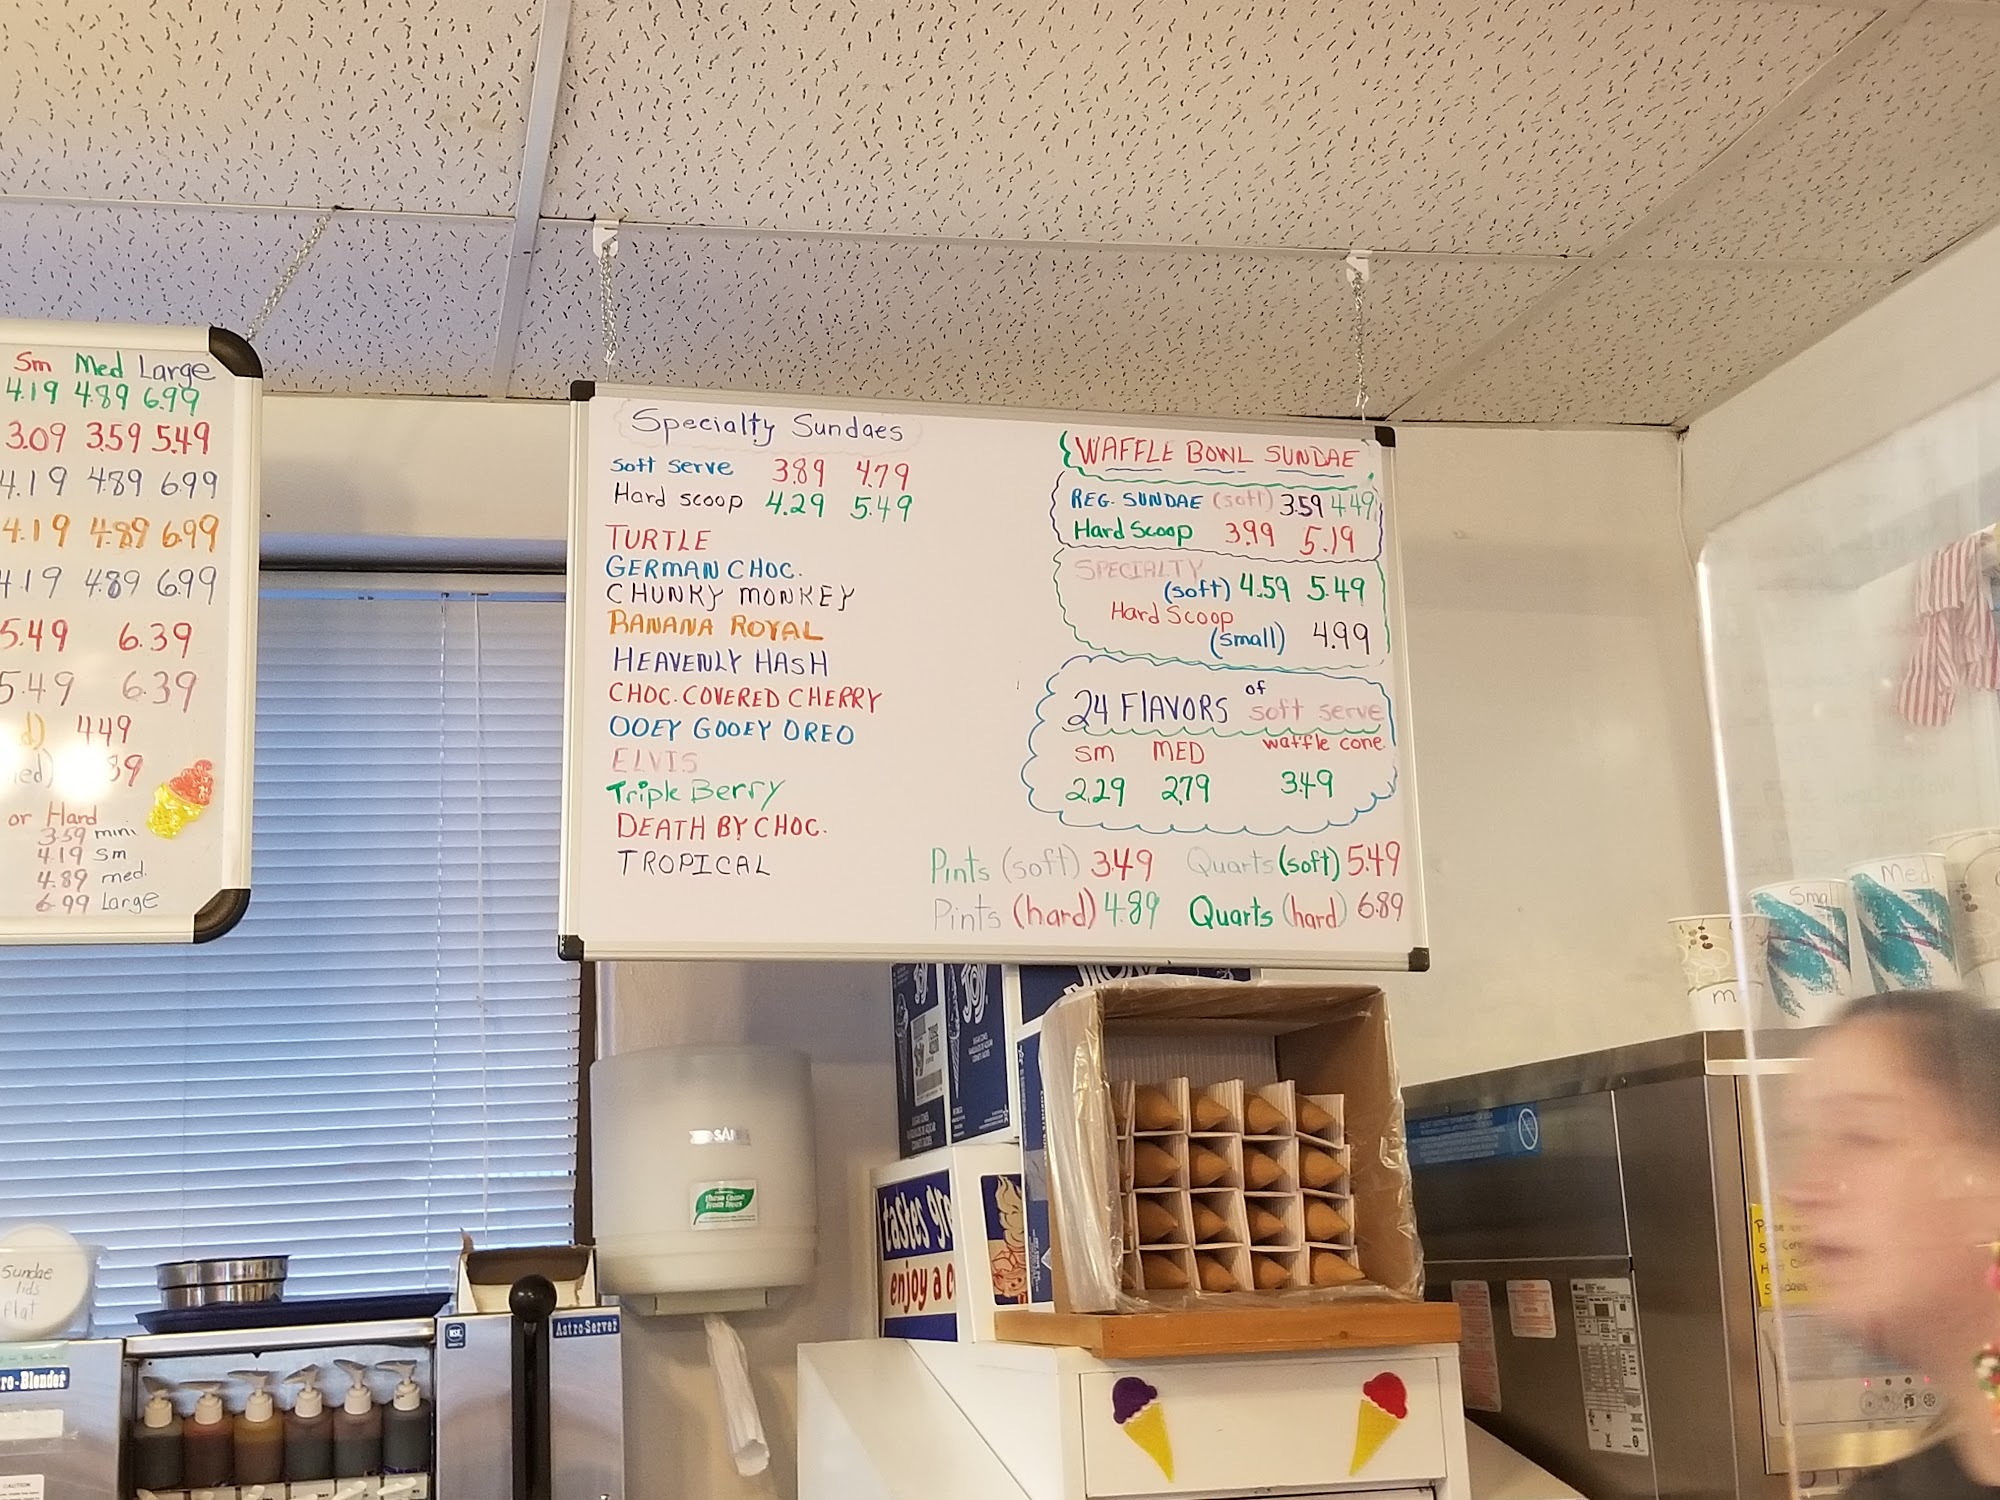 Sm Med Large
4.19 4.89 6.99
3.09 3.59 5.49
4.19 4.89 6.99
4.19 4.89 6.99
4.19 4.89 6.99
5.49 6.39
5.49 6.39
4.49
or Hard
3.59 mini
4.19 sm
4.89 med.
6.99 Large
Specialty Sundaes
Soft serve 3.89 4.79
Hard scoop 4.29 5.49
TURTLE
GERMAN CHOC.
CHUNKY MONKEY
BANANA ROYAL
HEAVENLY HASH
CHOC. COVERED CHERRY
OOEY GOOEY OREO
ELVIS
Triple Berry
DEATH BY CHOC.
TROPICAL
WAFFLE BOWL SUNDAE
REG. SUNDAE (soft) 3.59 4.49
Hard Scoop 3.99 5.19
SPECIALTY
(soft) 4.59 5.49
Hard Scoop
(small) 4.99
24 FLAVORS of soft serve
SM MED waffle cone
2.29 2.79 3.49
Pints (soft) 3.49 Quarts (soft) 5.49
Pints (hard) 4.89 Quarts (hard) 6.89
Small
Med.
m
JOY
SAN
These Come
From Trees
tastes gr
enjoy a c
Sundae
lids
flat
Astro-Server
ro-Blender
NSF
CAUTION